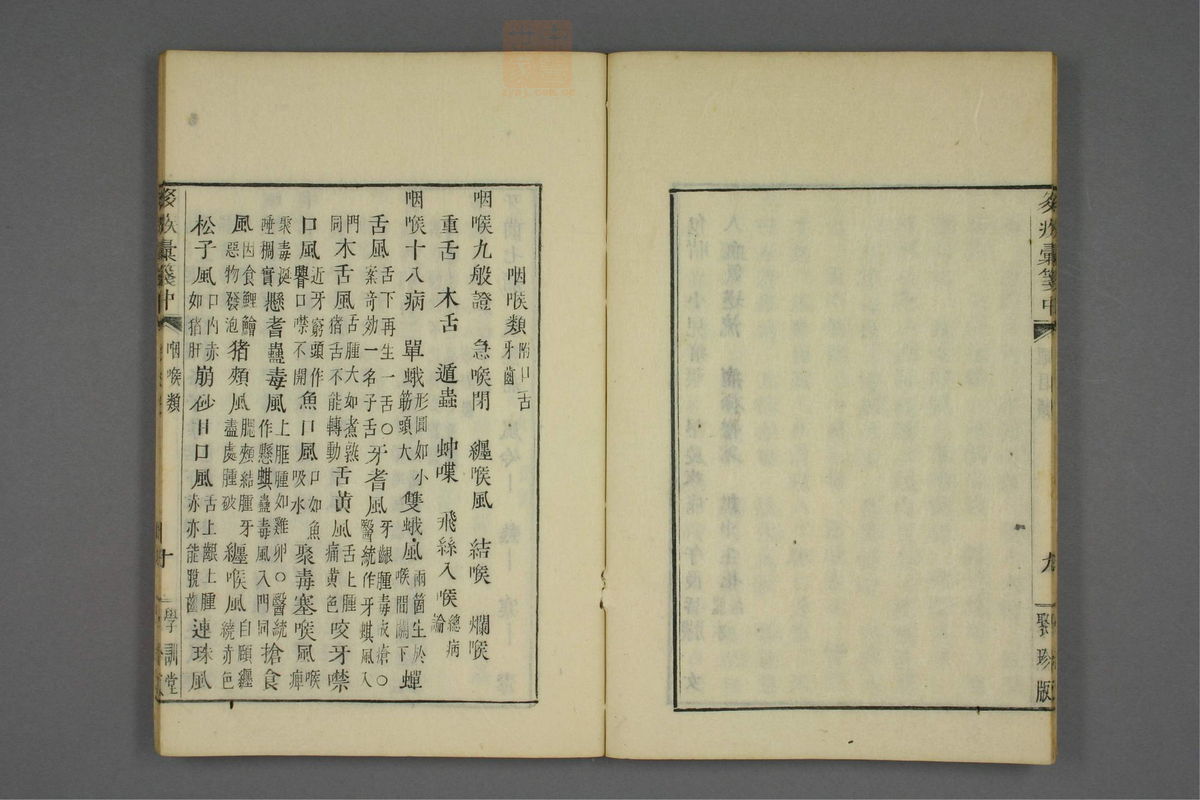 九
聚珍版
咽喉類附口舌牙齒
咽喉九般證　急喉閉　纏喉風　結喉　爛喉
重舌　木舌　遁蟲　蚛喋　飛絲入喉總病論
咽喉十八病　單蛾形圓如小筋頭大雙蛾風兩箇生於喉間關下蟬
舌風舌下再生一舌〇案奇効一名子舌牙耆風牙齦腫毒成瘡〇醫統作牙蜞風入
門同木舌風舌腫大如煮熟猪舌不能轉動舌黄風舌上腫痛黄色咬牙噤
口風近牙窮頭作䁾口噤不開魚口風口如魚吸水聚毒塞喉風喉痺
聚毒涎唾稠實懸耆蠱毒風上腭腫如雞卵〇醫統作懸蜞蠱毒風入門同搶食
風因食鯉鱠惡物發泡猪頰風腮頰結腫牙盡處腫破纏喉風自頤纏繞赤色
松子風口內赤如猪肝崩砂甘口風舌上齦上腫赤亦能脫齒連珠風
彙箋中
咽喉類
十
學訓堂